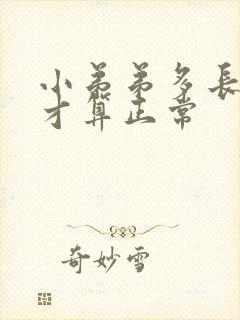 小弟弟多長
才算正常
奇妙雪